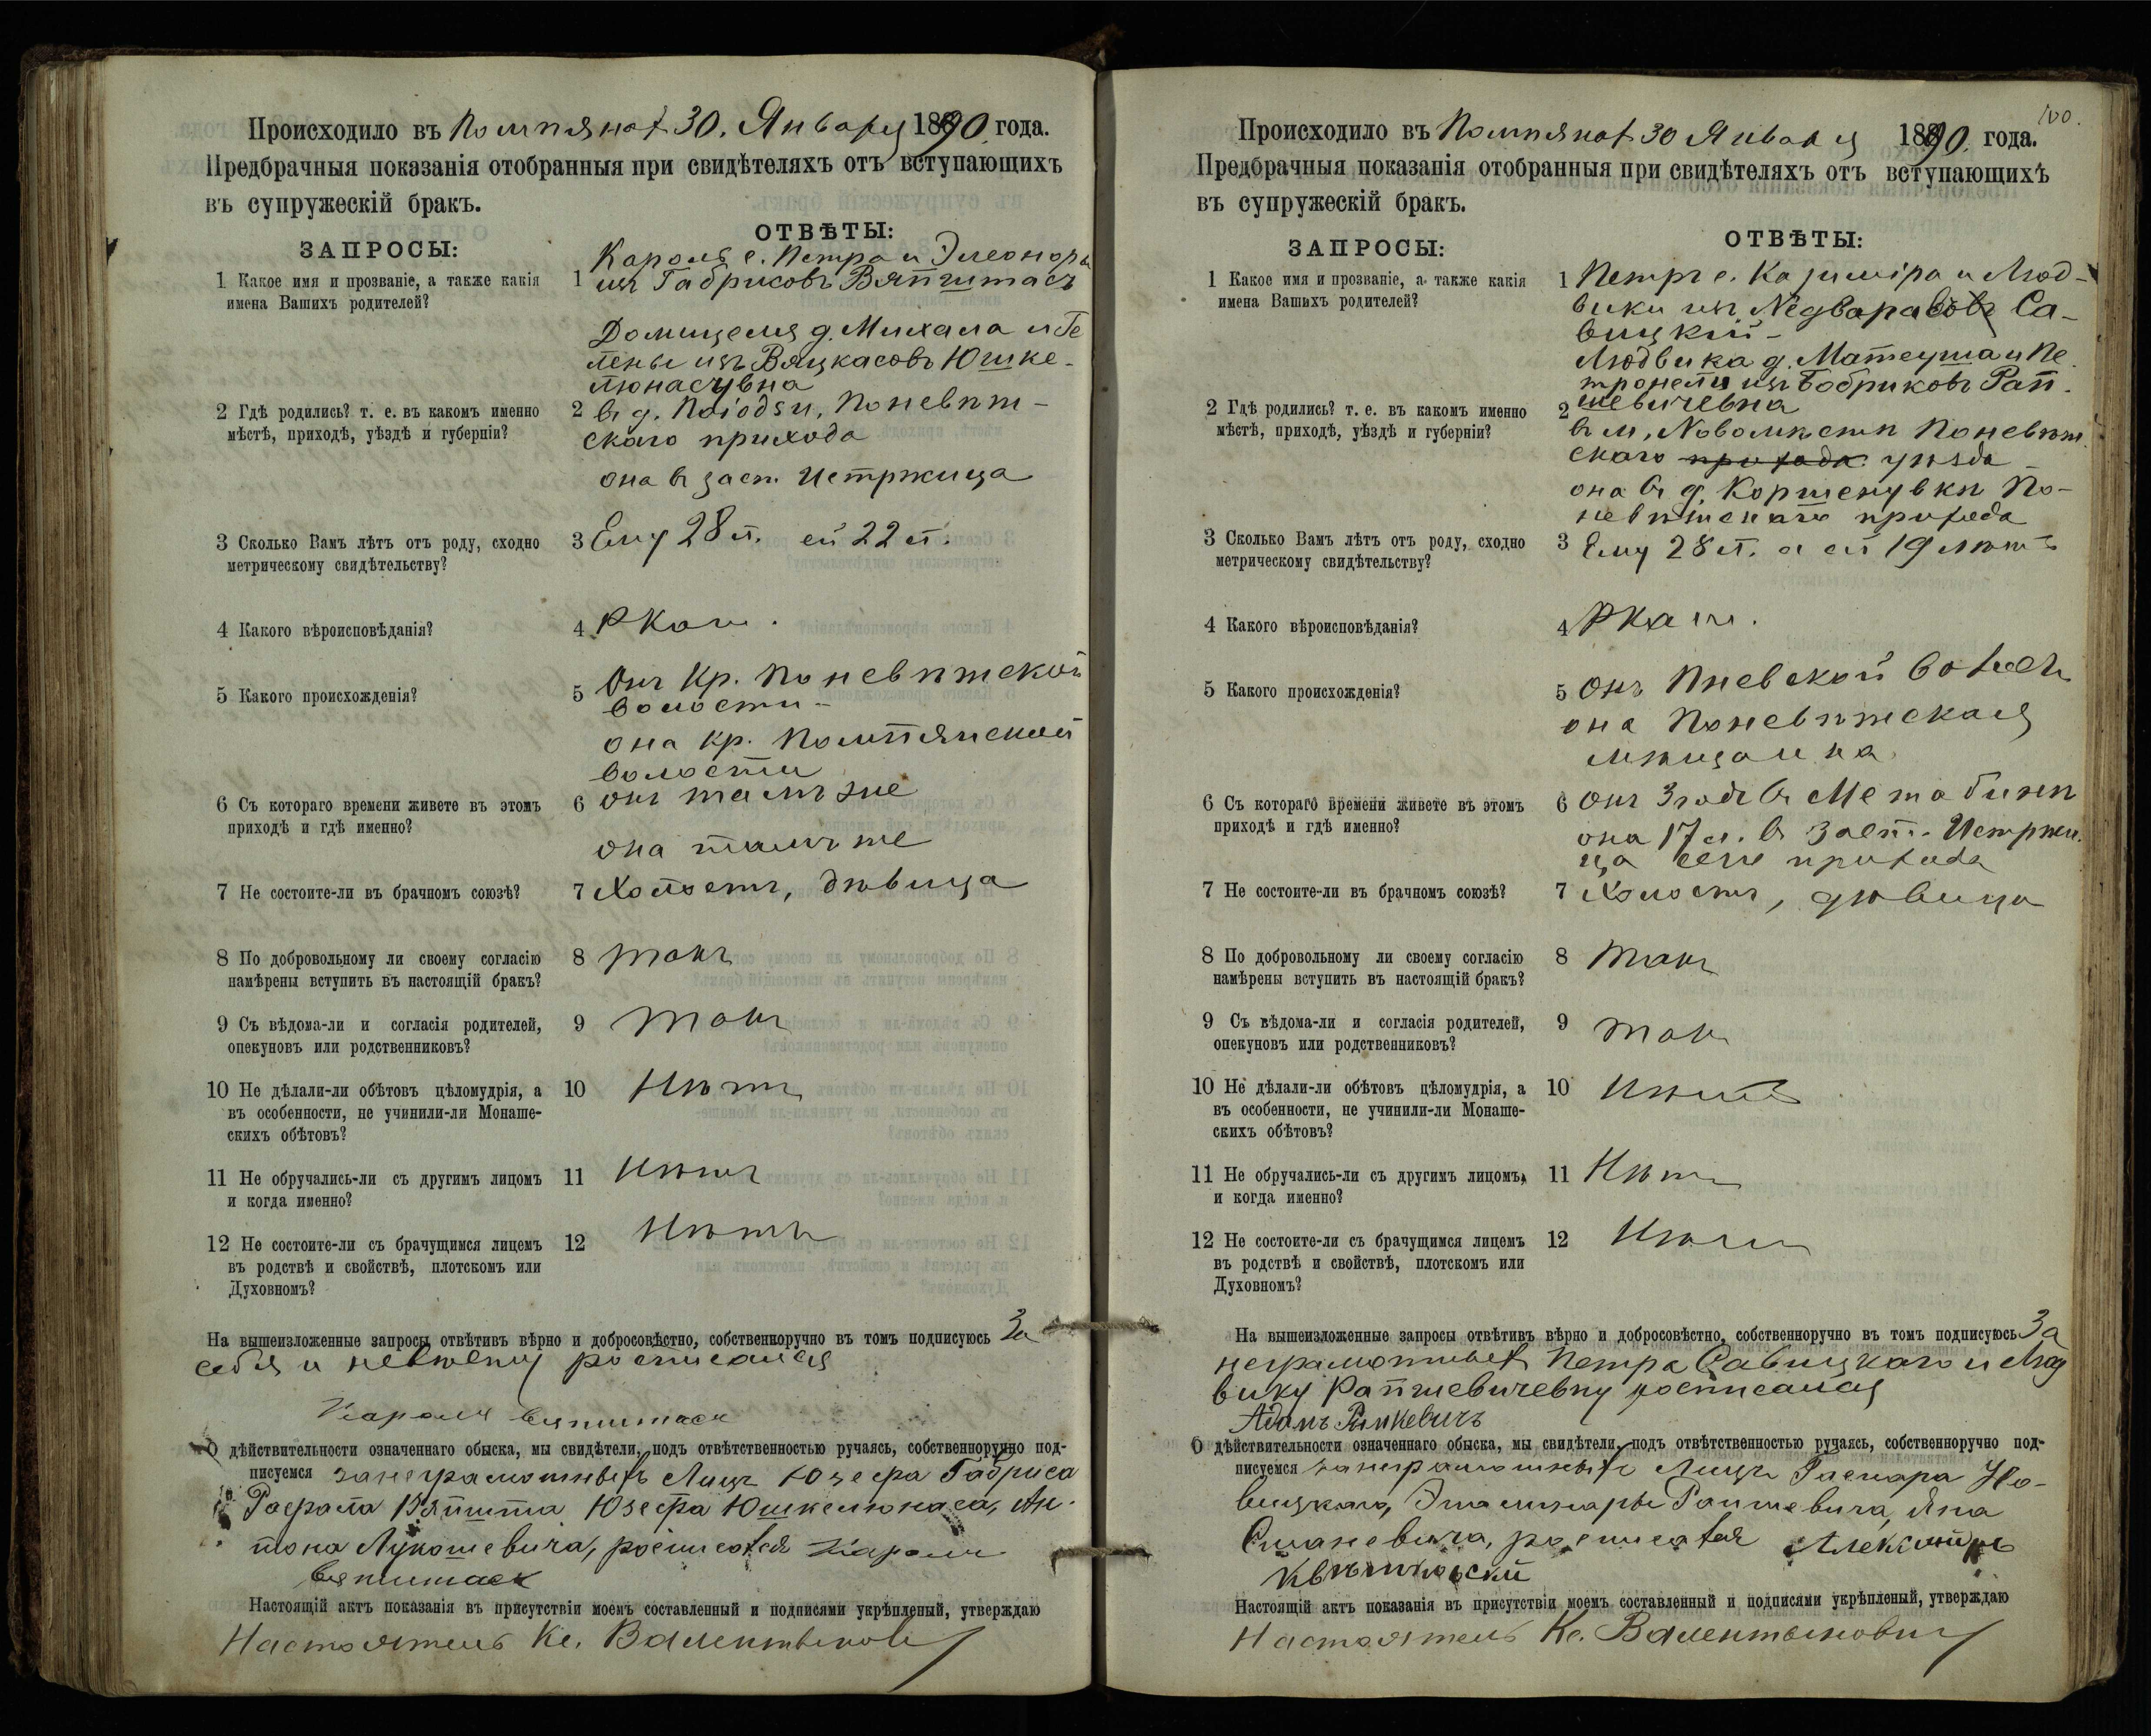 Происходило въ Помпянах 30. Января 1890. года.
Предбрачныя показанія отобранныя при свидѣтеляхъ отъ вступающихъ
въ супружескій бракъ.
ЗАПРОСЫ:
ОТВѢТЫ:
1 Какое имя и прозваніе, а также какія
имена Вашихъ родителей?
Кароль с. Петра и Элеоноры
1 изъ Габрисовъ Вяпштасъ
Домицеля д. Михала и Ге
лены изъ Вяцкасовъ Юшке-
люнасувна
2 Гдѣ родились? т. е. въ какомъ именно
мѣстѣ, приходѣ, уѣздѣ и губерніи?
2 въ д. Поневѣж-
скаго прихода
она въ заст. Истржица
3 Сколько Вамъ лѣтъ отъ роду, сходно
метрическому свидѣтельству?
3 Ему 28 л. ей 22 л.
4 Какого вѣроисповѣданія?
4 РКат.
5 Какого происхожденія?
5 Онъ кр. Поневѣжской
волости-
она кр. Помпянской
волости
6 Съ котораго времени живете въ этомъ
приходѣ и гдѣ именно?
6 онъ тамъ же
она тамъ же
7 Не состоите-ли въ брачномъ союзѣ?
7 Холостъ, дѣвица
8 По добровольному ли своему согласію
намѣрены вступить въ настоящій бракъ?
8 такъ
9 Съ вѣдома-ли и согласія родителей,
опекуновъ или родственниковъ?
9 такъ
10 Не дѣлали-ли обѣтовъ цѣломудрія, а
въ особенности, не учинили-ли Монаше-
скихъ обѣтовъ?
10 Нѣтъ
11 Не обручались-ли съ другимъ лицомъ
и когда именно?
11 Нѣтъ
12 Не состоите-ли съ брачущимся лицемъ
въ родствѣ и свойствѣ, плотскомъ или
Духовномъ?
12 Нѣтъ
На вышеизложенные запросы отвѣтивъ вѣрно и добросовѣстно, собственноручно въ томъ подписуюсь За
себя и невѣсту росписался
Кароль Вяпштасъ
О дѣйствительности означеннаго обыска, мы свидѣтели, подъ отвѣтственностью ручаясь, собственноручно под-
писуемся за неграмотныхъ Лицъ Юзефа Габриса
Рафала Вяпшта Юзефа Юшкелюнаса, Ан-
тона Лукашевича, росписался Кароль
Вяпштасъ
Настоящій актъ показанія въ присутствіи моемъ составленный и подписями укрѣпленый, утверждаю
Настоятель Кс. Валентынович
100.
Происходило въ Помпянах 30 Января 1890. года.
Предбрачныя показанія отобранныя при свидѣтеляхъ отъ вступающихъ
въ супружескій бракъ.
ЗАПРОСЫ:
ОТВѢТЫ:
1 Какое имя и прозваніе, а также какія
имена Вашихъ родителей?
1 Петръ с. Казиміра и Люд-
вики изъ Недварасовъ Са-
вицкій-
Людвика д. Матеуша и Пе
тронели изъ Бобриковъ Рап-
шевичевна
2 Гдѣ родились? т. е. въ какомъ именно
мѣстѣ, приходѣ, уѣздѣ и губерніи?
2 в м. Новомѣсти Поневѣж
скаго прихода уѣзда
она въ д. Коршенувки По-
невѣжскаго прихода
3 Сколько Вамъ лѣтъ отъ роду, сходно
метрическому свидѣтельству?
3 Ему 28 л. а ей 19 лѣтъ
4 Какого вѣроисповѣданія?
4 РКат.
5 Какого происхожденія?
5 Онъ
она Поневѣжская
мѣщанка
6 Съ котораго времени живете въ этомъ
приходѣ и гдѣ именно?
6 Онъ 3 года в
она 17 л. в заст. Истржи
ца сего прихода
7 Не состоите-ли въ брачномъ союзѣ?
7 Холостъ, дѣвица
8 По добровольному ли своему согласію
намѣрены вступить въ настоящій бракъ?
8 такъ
9 Съ вѣдома-ли и согласія родителей,
опекуновъ или родственниковъ?
9 такъ
10 Не дѣлали-ли обѣтовъ цѣломудрія, а
въ особенности, не учинили-ли Монаше-
скихъ обѣтовъ?
10 Нѣтъ
11 Не обручались-ли съ другимъ лицомъ,
и когда именно?
11 Нѣтъ
12 Не состоите-ли съ брачущимся лицемъ
въ родствѣ и свойствѣ, плотскомъ или
Духовномъ?
12 Нѣтъ
На вышеизложенные запросы отвѣтивъ вѣрно и добросовѣстно, собственноручно въ томъ подписуюсь За
неграмотных Петра Савицкаго и Люд
вику Рапшевичевну росписался
Адамъ Ринкевичъ
О дѣйствительности означеннаго обыска, мы свидѣтели, подъ отвѣтственностью ручаясь, собственноручно под-
писуемся за неграмотных Лицъ
Рапшевича, Яна
росписался Александръ
Настоящій актъ показанія въ присутствіи моемъ составленный и подписями укрѣпленый, утверждаю
Настоятель Кс. Валентынович